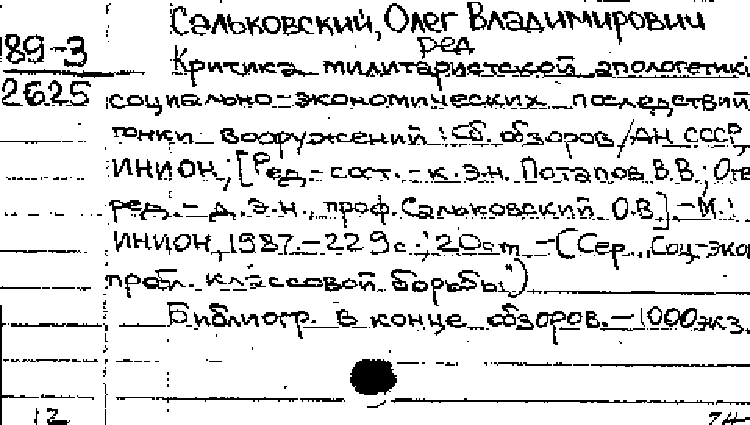 Сальковский, Олег Владимирович
ред
89-3
Критика милитаристской апологетик
2625
социально-экономических последствий
гонки вооружений : Сб. обзоров / АН СССР,
ИНИОН; [Ред.-сост. - к.э.н. Потапов В.В.; Отв
ред. - д.э.н., проф. Сальковский О.В.]. - М.:
ИНИОН, 1987. - 229 с.; 20 см - (Сер. "Соц.-эко
пробл. классовой борьбы")
Библиогр. в конце обзоров. - 1000 экз.
12
74